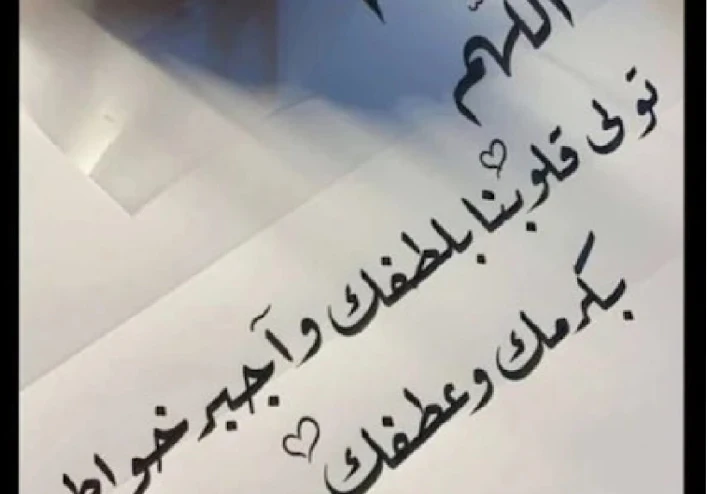 اللهم
تولى قلوبنا بلطفك وآجبر
بكرمك وعطفك